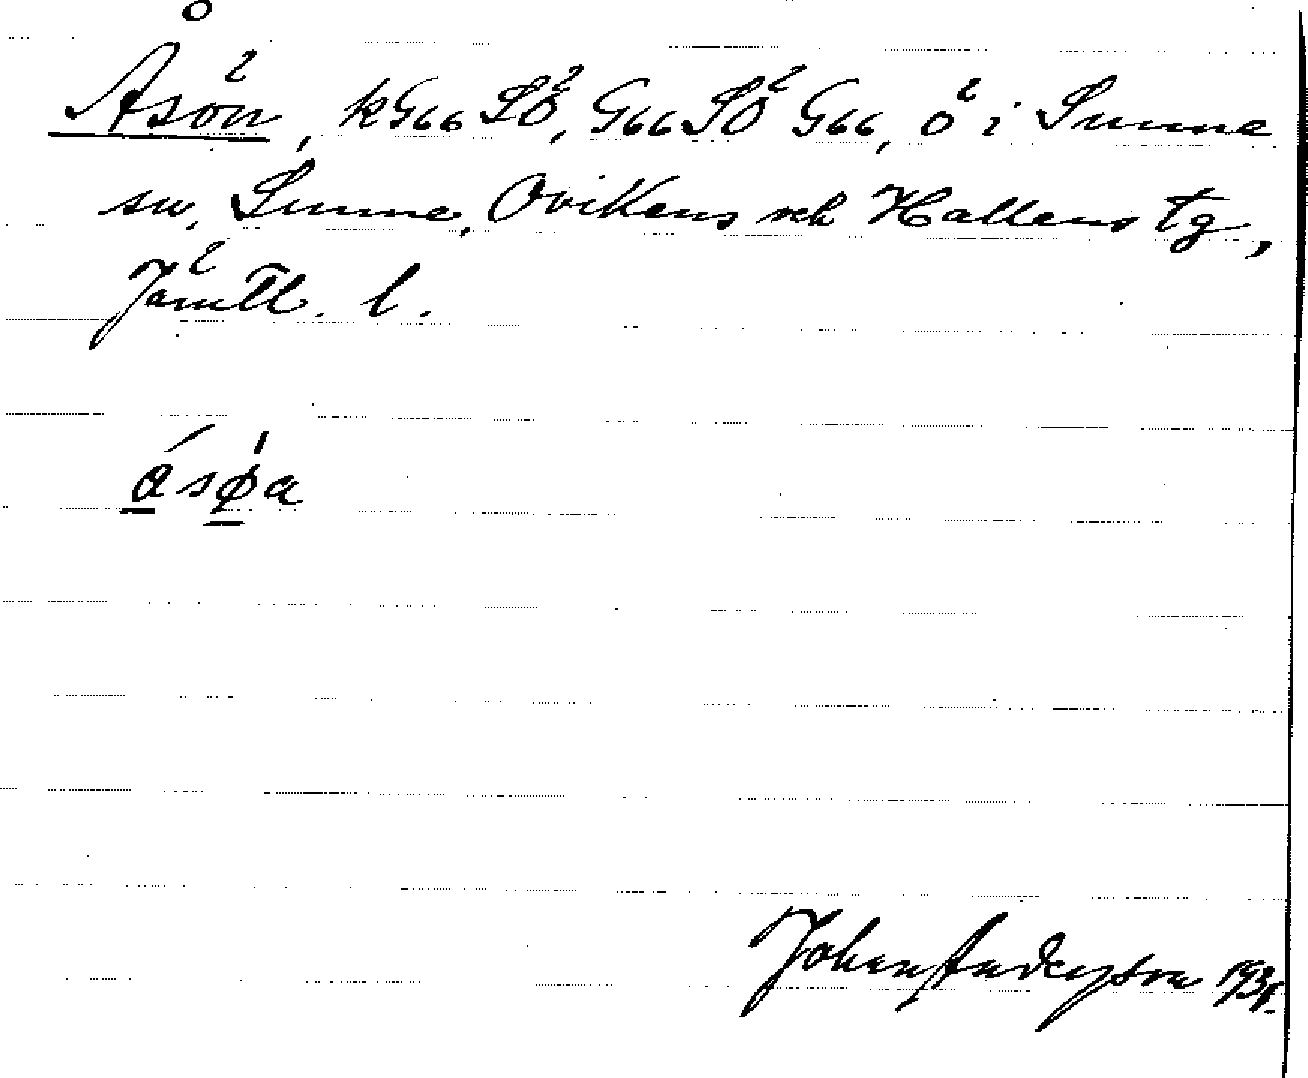 Åsön, kG66 SÖ, G66 SÖ G66, ö i Sunne
sn, Sunne, Ovikens och Hallens tg,
Jämtl. l.
åsøa
Johan Anderson 1931.